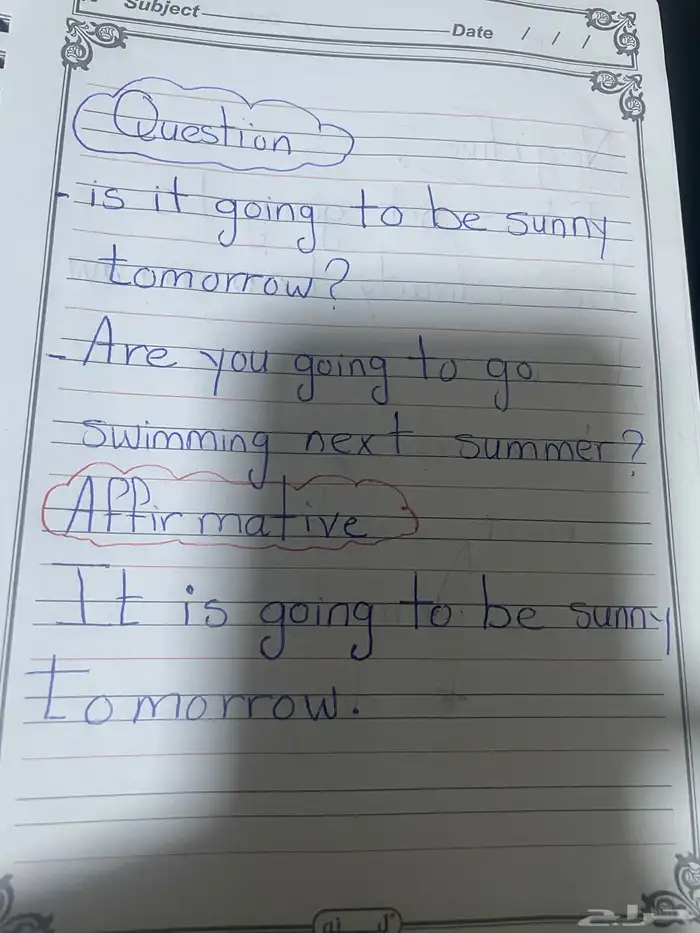 Subject
Date / / /
Question
- is it going to be sunny
tomorrow?
- Are you going to go
swimming next summer?
Affirmative
It is going to be sunny
tomorrow.
حراج